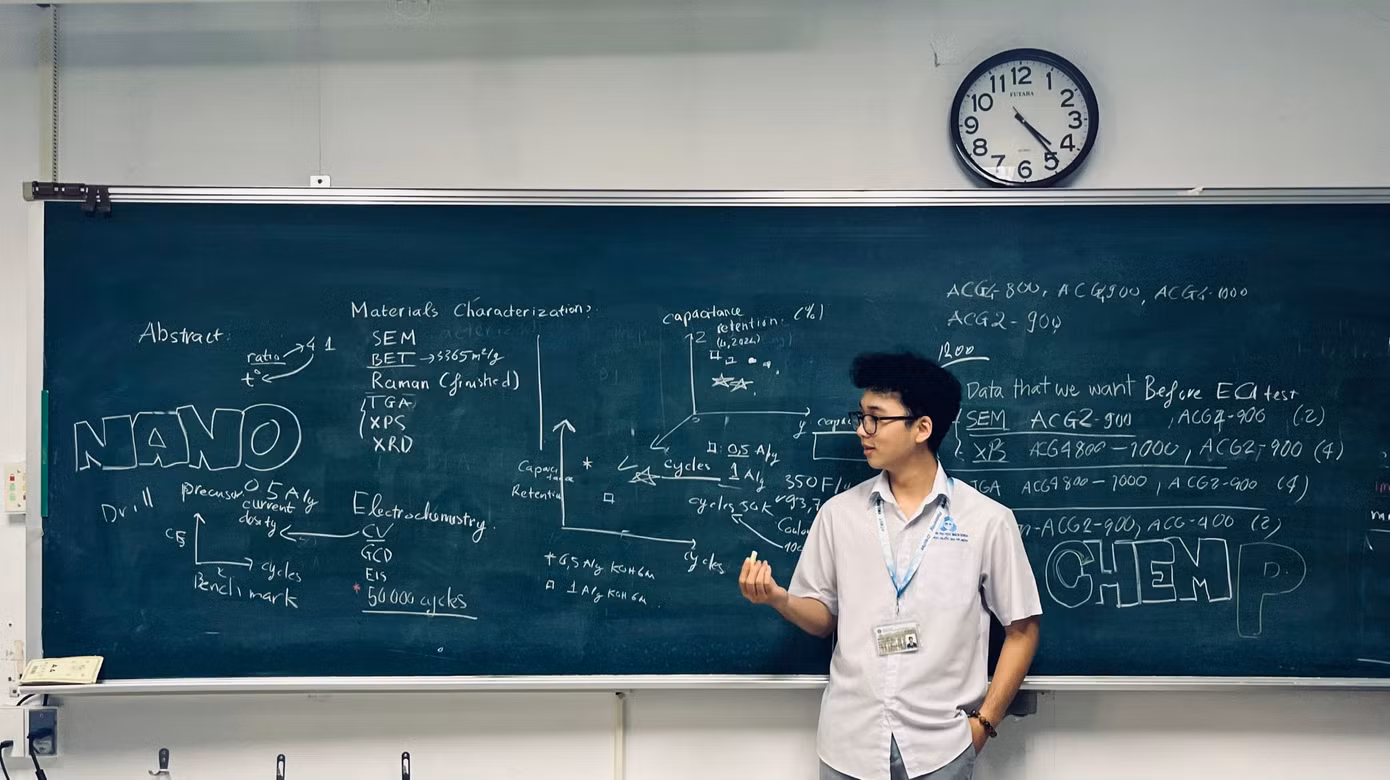 11 12 1
10 2
9 3
8 4
7 6 5
FUTABA
Abstract:
ratio → 4 1
t°
NANO
Drill
precursor
0.5 A/g
current
cycles
Benchmark
Materials Characterization:
SEM
BET → 3365 m²/g
Raman (finished)
TGA
XPS
XRD
Electrochemistry.
CV
GCD
EIS
* 50 000 cycles
capacitance
retention. (%)
z
y
Retention
*
cycles
* 0,5 A/g KOH 6M
□ 1 A/g KOH 6M.
□: 0,5 A/g
☆ cycles 1 A/g
cycles 50K
350 F/
ACG4-800, ACG4-900, ACG4-1000
ACG2-900
1200
Data that we want Before ECA test
SEM ACG2-900, ACG4-900 (2)
XPS ACG4 800-1000, ACG2-900 (4)
TGA ACG4 800-1000, ACG2-900 (4)
n-ACG2-900, ACG-400 (2)
CHEM P
D.